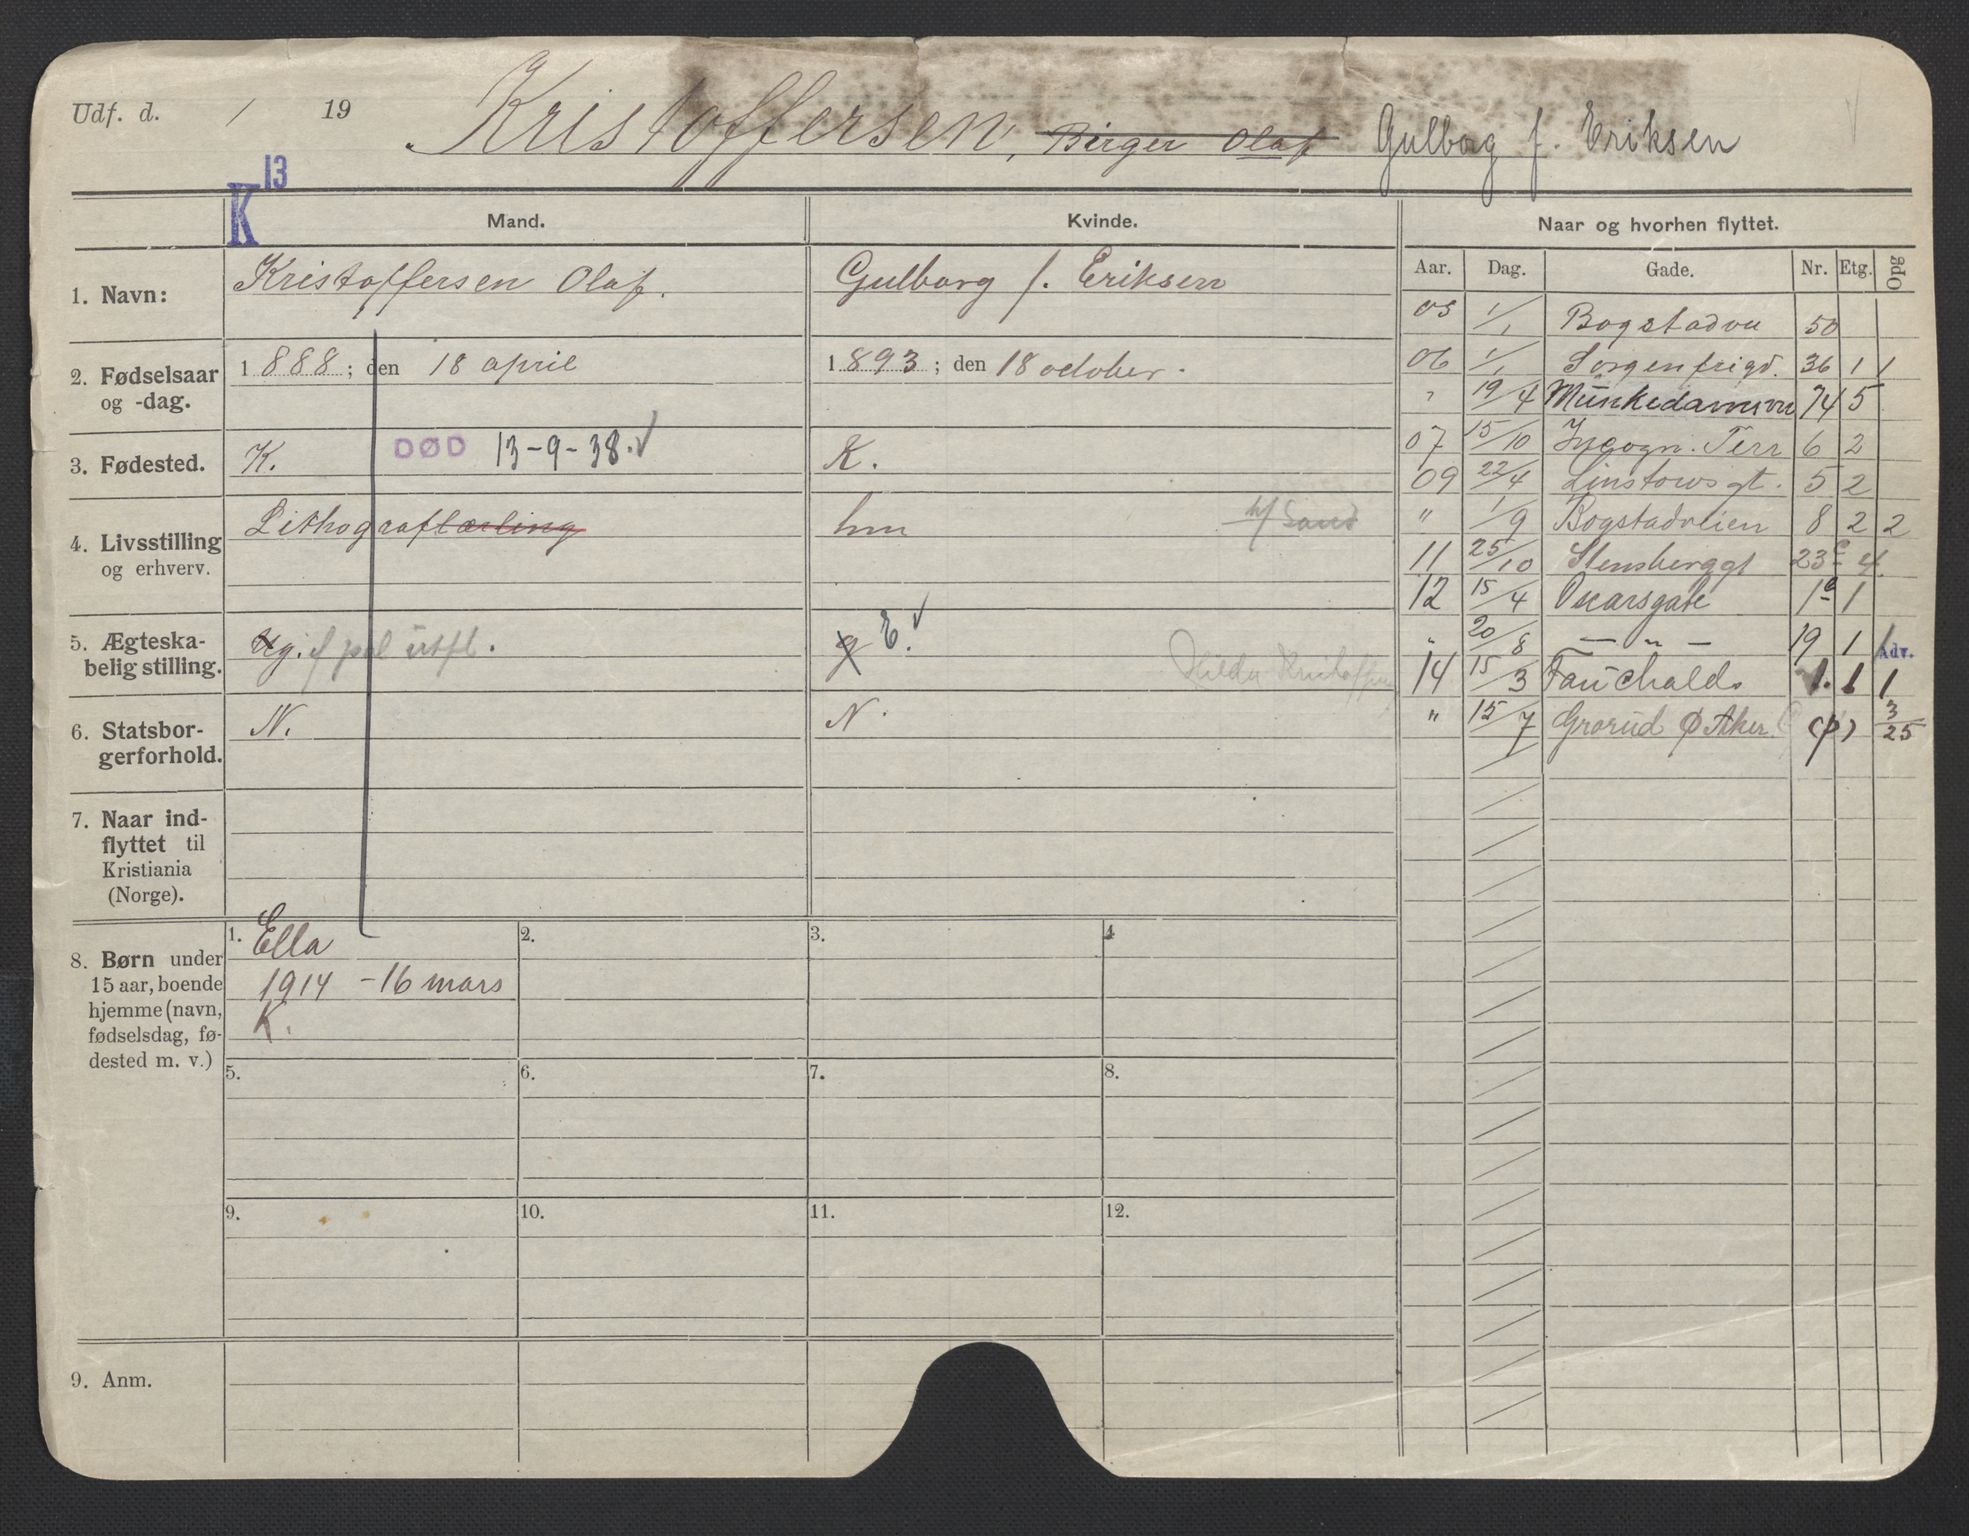 Udf. d. / 19
Kristoffersen, Birger Olaf Gulborg f. Eriksen
K 13
Mand. Kvinde. Naar og hvorhen flyttet.
Aar. Dag. Gade. Nr. Etg. Opg
1. Navn: Kristoffersen Olaf. Gulborg f. Eriksen
2. Fødselsaar og -dag. 1888; den 18 april 1893; den 18 october.
3. Fødested. K. DØD 13-9-38. K.
4. Livsstilling og erhverv. Lithograflærling hm
5. Ægteska-
belig stilling. Ug. g E.
Hilda Kristoffersen
6. Statsbor-
gerforhold. N. N.
7. Naar ind-
flyttet til
Kristiania
(Norge).
8. Børn under
15 aar, boende
hjemme (navn,
fødselsdag, fø-
dested m. v.)
1. Ella
1914 - 16 mars
K.
2.
3.
4
5.
6.
7.
8.
9.
10.
11.
12.
9. Anm.
05 1/1 Bogstadvn 50
06 1/1 Sorgenfrigd. 36 1 1
" 19/4 Munkedamsvn 74 5
07 15/10 Incogn. Terr 6 2
09 22/4 Linstowsgt. 5 2
" 1/9 Bogstadveien 8 2 2
11 25/10 Stensberggt 23c 4
12 15/4 Oscarsgate 1a 1
" 20/8 — " — 19 1 Adv.
14 15/3 Fauchalds 1. 1 1
" 15/7 Grorud Ø Aker (p) 3/25